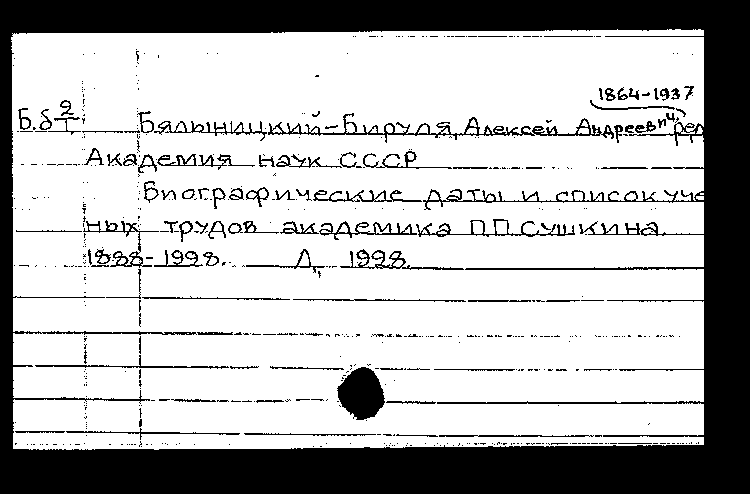 1864-1937
Б.б 2/I Бялыницкий-Бируля, Алексей Андреевич, ред
Академия наук СССР
Биографические даты и список уче
ных трудов академика П.П.Сушкина.
1888-1928. Л., 1928.